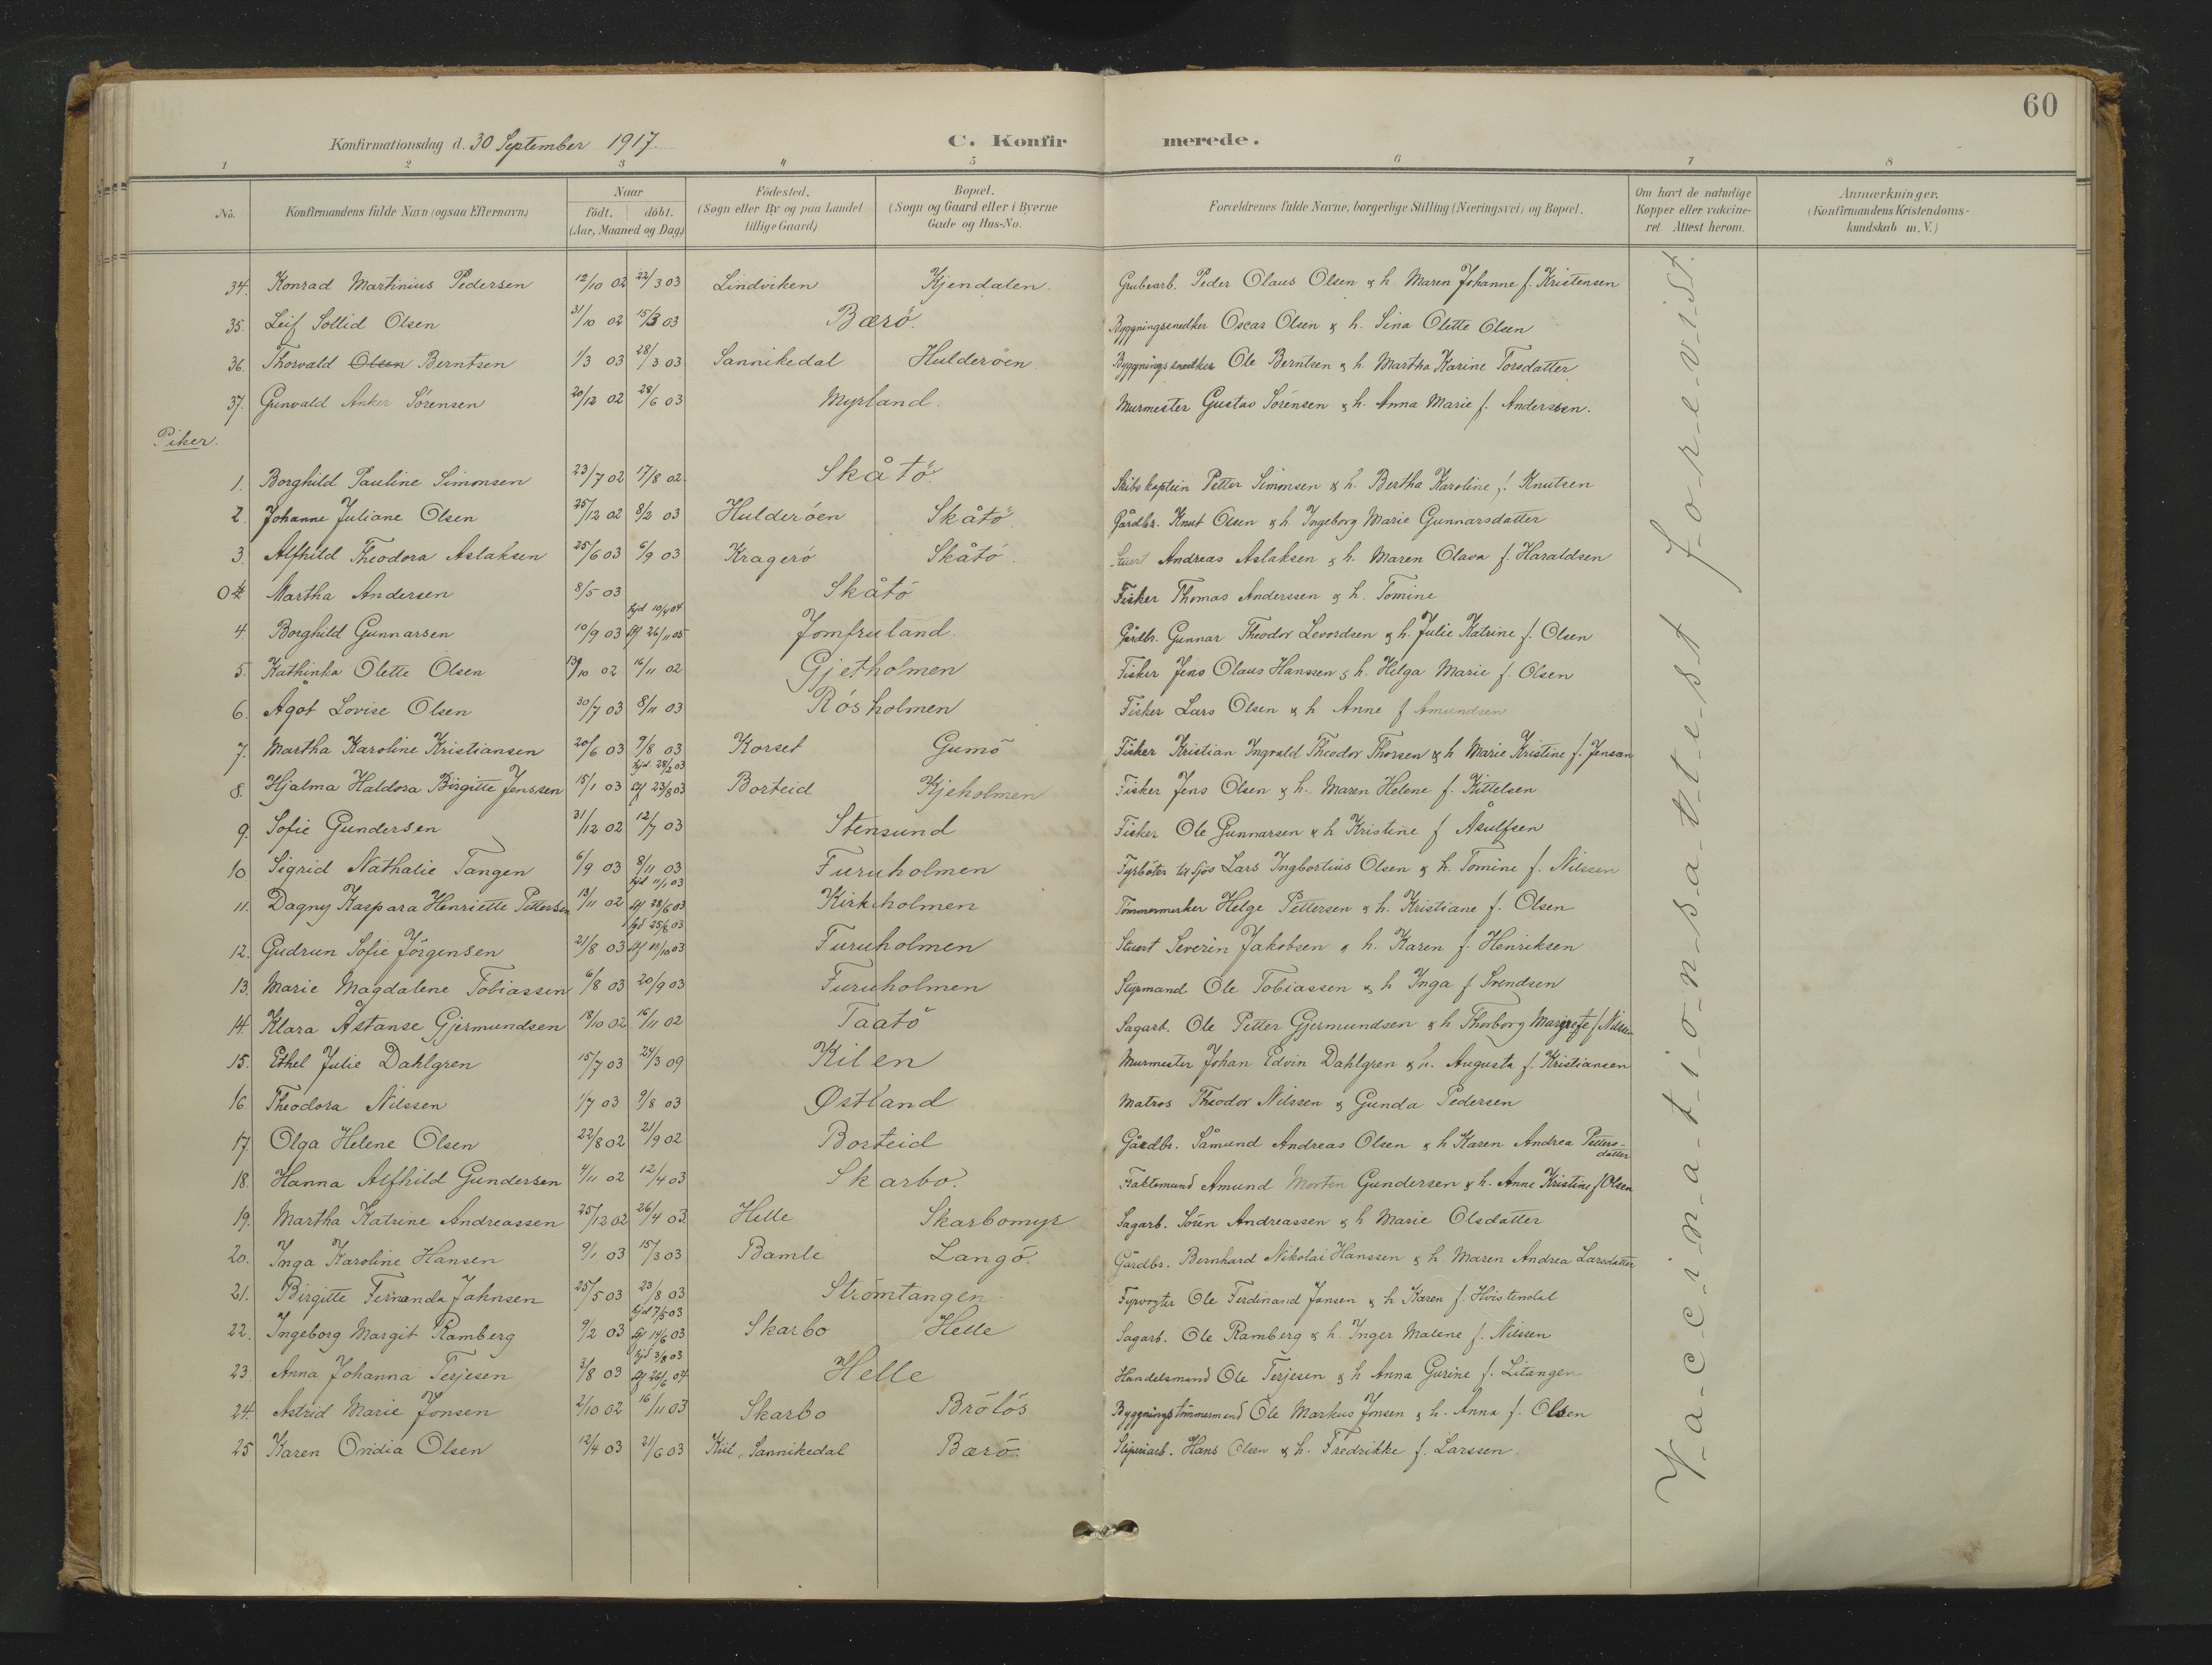 60
Konfirmationsdag d. 30 September 1917. C. Konfir merede.
1 2 3 4 5 6 7 8
No. Konfirmandens fulde Navn (ogsaa Efternavn) Naar födt. döbt. (Aar, Maaned og Dag) Födested. (Sogn eller By og paa Landet tillige Gaard) Bopæl. (Sogn og Gaard eller i Byerne Gade og Hus-No. Forældrenes fulde Navne, borgerlige Stilling (Næringsvei) og Bopæl. Om havt de naturlige Kopper eller vakcineret. Attest herom. Anmærkninger. (Konfirmandens Kristendomskundskab m. V.)
34. Konrad Martinius Pedersen 12/10 02 22/3 03 Lindviken Kjendalen. Grubearb. Peder Olaus Olsen & h. Maren Johanne f. Kristensen
35. Leif Sollid Olsen 31/10 02 15/3 03 Bærö. Byggningssnedker Oscar Olsen & h. Lina Olette Olsen
36. Thorvald Olsen Berntsen 1/3 03 28/3 03 Sannikedal Hulderöen Byggningssnedker Ole Berntsen & h. Martha Karine Torsdatter
37. Gunvald Anker Sörensen 20/12 02 28/6 03 Myrland. Murmester Gustav Sörensen & h. Anna Marie f. Anderssen.
Piker.
1. Borghild Pauline Simonsen 23/7 02 17/8 02 Skåtö Skibskaptein Petter Simonsen & h. Bertha Karoline f. Knutsen
2. Johanne Juliane Olsen 25/12 02 8/2 03 Hulderöen Skåtö. Gårdbr. Knut Olsen & h. Ingeborg Marie Gunnarsdatter
3. Alfhild Theodora Aslaksen 25/6 03 6/9 03 Kragerö Skåtö. Stuert Andreas Aslaksen & h. Maren Olava f. Haraldsen
0 4 Martha Andersen 8/5 03 Skåtö Fisker Thomas Anderssen & h. Tomine
4. Borghild Gunnarsen 10/9 03 hjd 10/4 04 Stf 26/11 05 Jomfruland. Gårdbr. Gunnar Theodor Levordsen & h. Julie Katrine f. Olsen
5. Kathinka Olette Olsen 13/10 02 16/11 02 Gjetholmen Fisker Jens Olaus Hanssen & h. Helga Marie f. Olsen
6. Ågot Lovise Olsen 30/7 03 8/11 03 Rösholmen Fisker Lars Olsen & h Anne f Amundsen
7. Martha Karoline Kristiansen 20/6 03 9/8 03 Korset Gumö Fisker Kristian Ingvald Theodor Thorsen & h Marie Kristine f. Jensen
8. Hjalma Haldora Birgitte Jenssen 15/1 03 hjd. 28/2 03 Stf 23/8 03 Borteid Kjeholmen Fisker Jens Olsen & h. Maren Helene f. Kittelsen
9. Sofie Gundersen 31/12 02 12/7 03 Stensund Fisker Ole Gunnarsen & h Kristine f Åsulfsen
10 Sigrid Nathalie Tangen 6/9 03 8/11 03 Furuholmen Fyrböter til Sjös Lars Ingbortius Olsen & h. Tomine f. Nilssen
11. Dagny Kaspara Henriette Pettersen 13/11 02 hjd 11/1 03 Stf 28/6 03 Kirkeholmen Tömmermerker Helge Pettersen & h. Kristiane f. Olsen
12. Gudrun Sofie Jörgensen 21/8 03 hjd 25/8 03 Furuholmen Stuert Severin Jakobsen & h. Karen f. Henriksen
13. Marie Magdalene Tobiassen 6/8 03 20/9 03 Furuholmen Styrmand Ole Tobiassen & h Inga f Svendsen
14. Klara Åstanse Gjermundsen 18/10 02 16/11 02 Taatö Sagarb. Ole Petter Gjermundsen & h Thorborg Margrete f Nilssen
15. Ethel Julie Dahlgren 15/7 03 24/3 09 Kilen Murmester Johan Edvin Dahlgren & h. Augusta f. Kristiansen
16. Theodora Nilssen 1/7 03 9/8 03 Østland Matros Theodor Nilssen & Gunda Pedersen
17. Olga Helene Olsen 22/8 02 21/9 02 Borteid Gårdbr. Såmund Andreas Olsen & h Karen Andrea Pettersdatter
18. Hanna Alfhild Gundersen 4/11 02 12/4 03 Skarbo. Fraktemand Amund Morten Gundersen & h. Anne Kristine f Olsen
19. Martha Katrine Andreassen 25/12 02 26/4 03. Helle Skarbomyr Sagarb. Sören Andreassen & h Marie Olsdatter
20. Inga Karoline Hansen 9/1 03 15/3 03 Bamle Langö. Gårdbr. Bernhard Nikolai Hanssen & h. Maren Andrea Larsdatter
21. Birgitte Fernanda Jahnsen 25/5 03 23/8 03 Strömtangen Fyrvogter Ole Ferdinand Jansen & h Karen f. Hvistendal
22. Ingeborg Margit Ramberg 9/2 03 hjd 7/5 03 Stf 14/6 03 Skarbo Helle Sagarb. Ole Ramberg & h. Inger Malene f. Nilssen
23 Anna Johanna Terjesen 3/8 03 hjd 3/8 03 Stf 26/6 04 Helle Handelsmand Ole Terjesen & h Anna Gurine f. Litangen
24. Astrid Marie Jonsen 2/10 02 16/11 03 Skarbo Brötös Byggningstömmermend Ole Markus Jonsen & h. Anna f. Olsen
25 Karen Ovidia Olsen 12/4 03 21/6 03 Kiil, Sannikedal Bærö. Sliperiarb. Hans Olsen & h. Fredrikke f. Larssen.
V-a-c-c-i-n-a-t-i-o-n-s-a-t-t-e-s-t f-o-r-e-v-i-s-t.